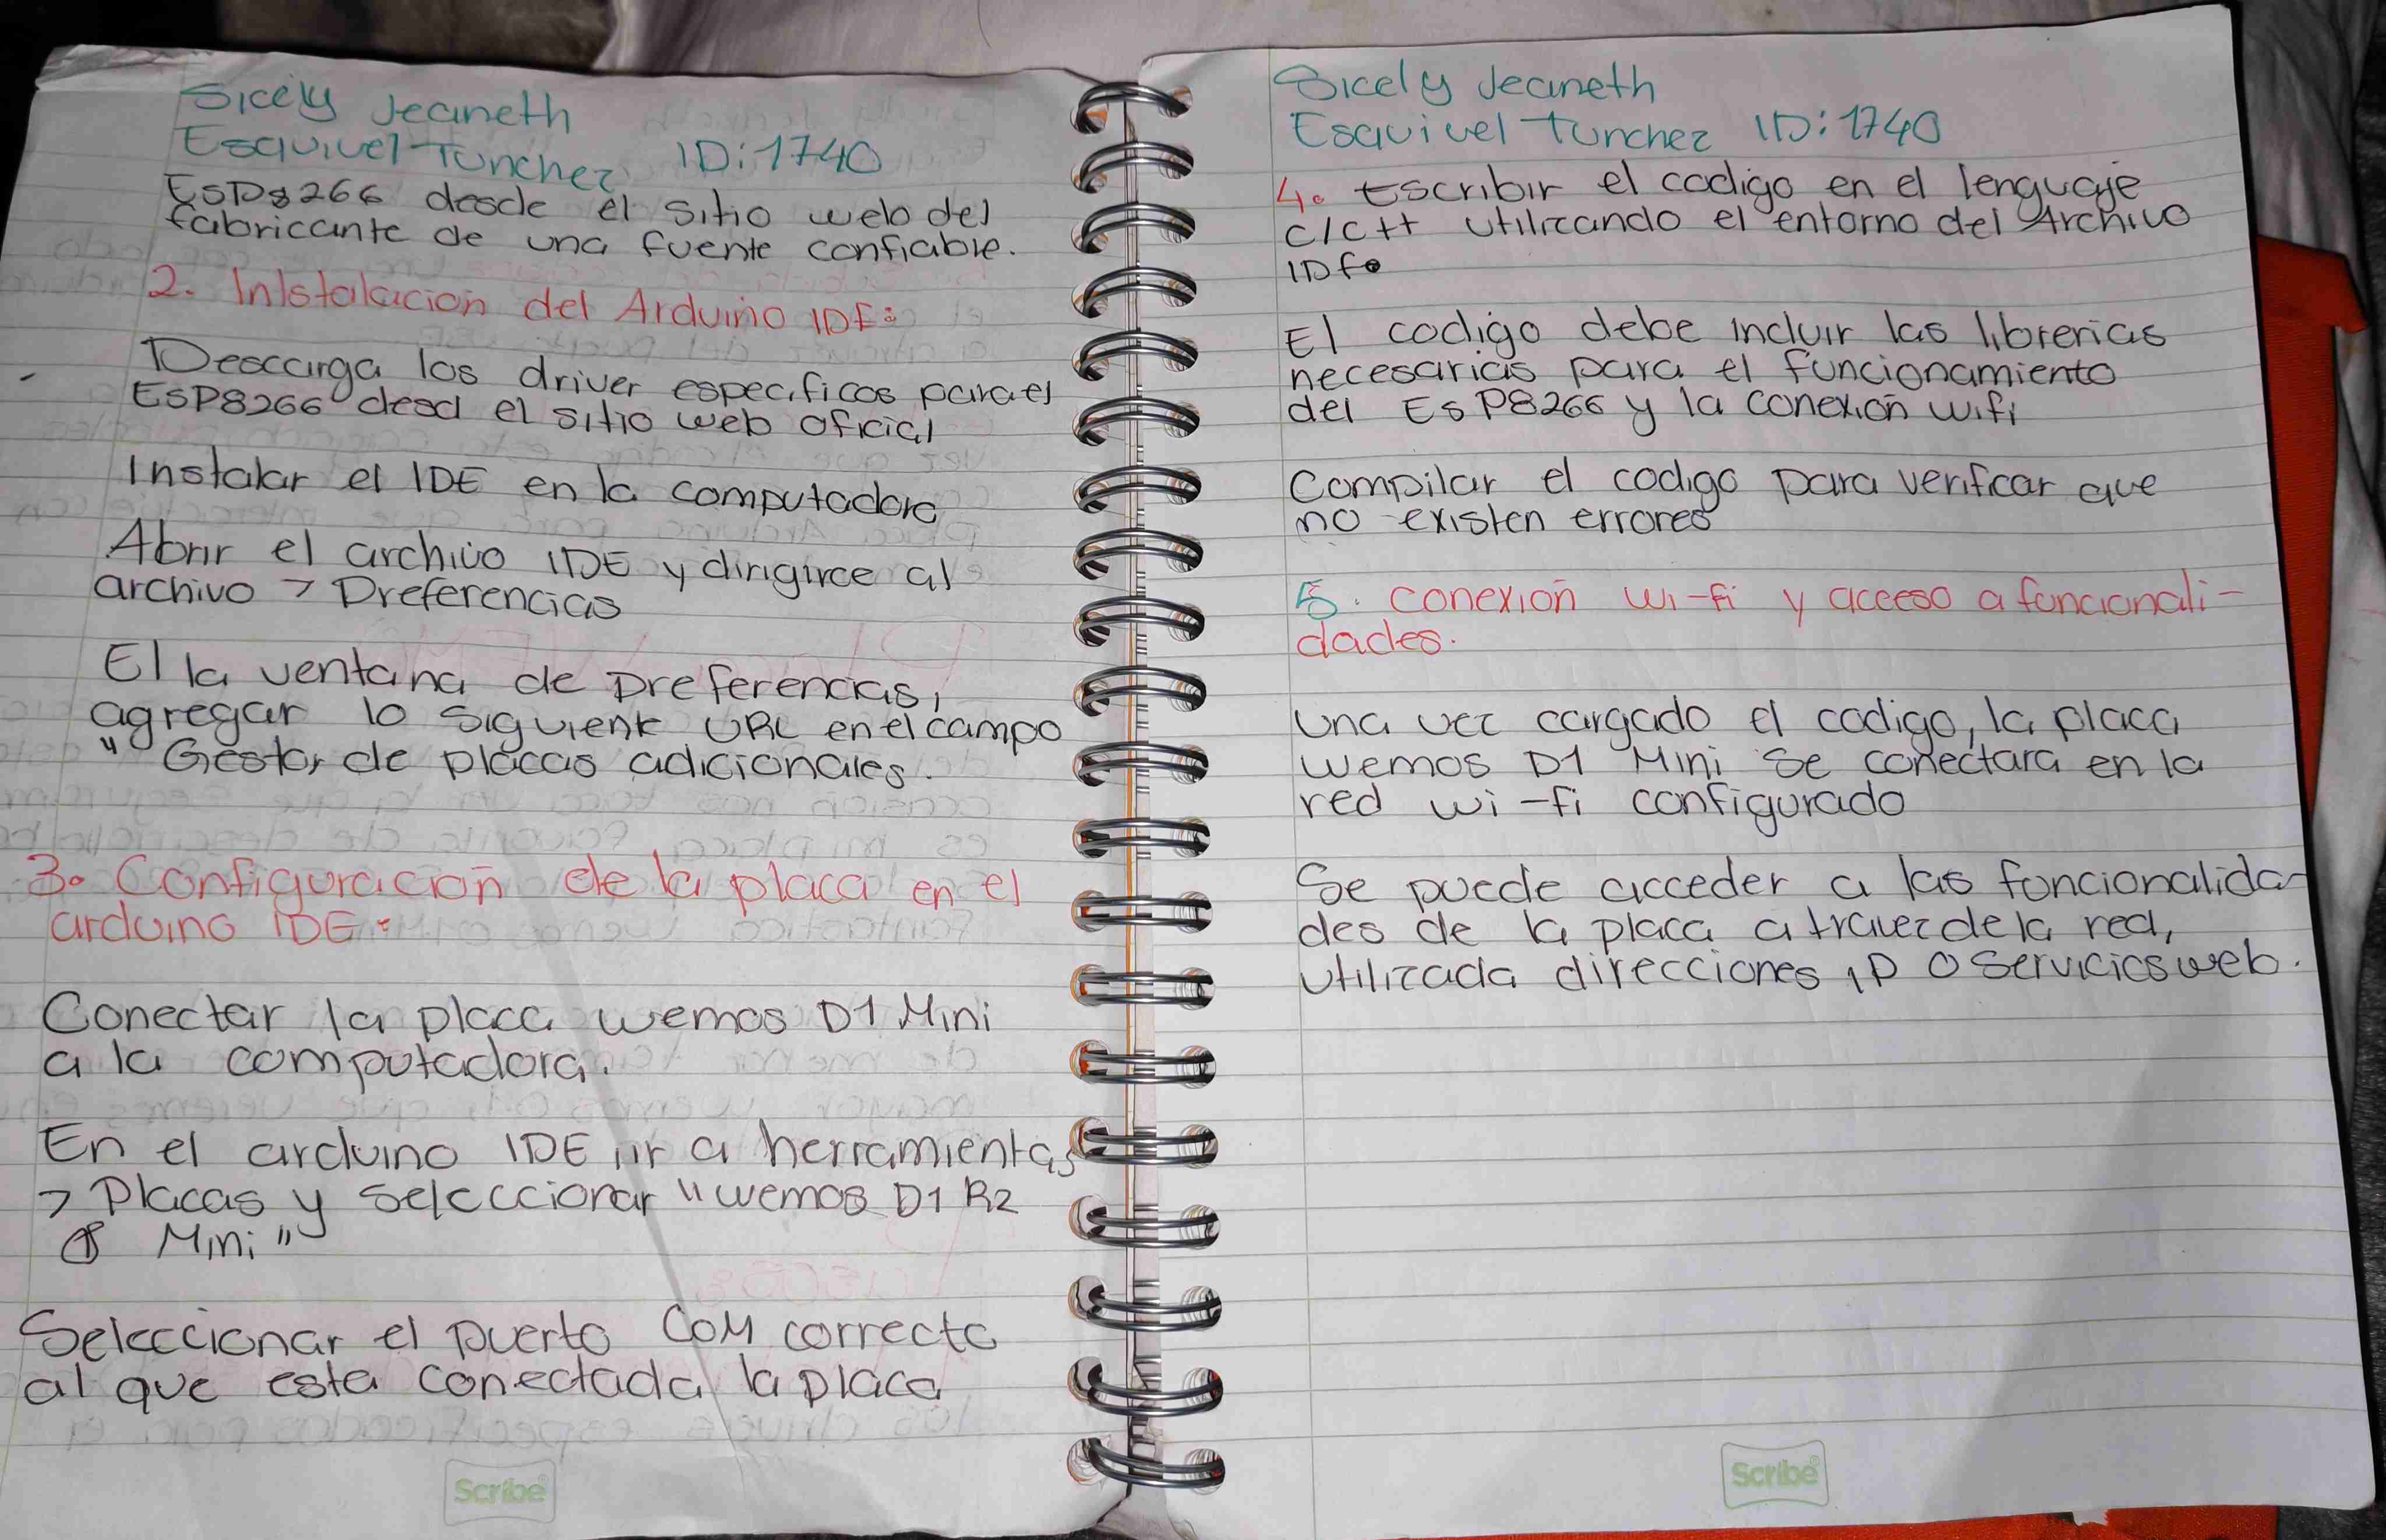 Sicely Jeaneth
Esquivel Tunchez ID:1740
ESP8266 desde el sitio web del
fabricante de una fuente confiable.
2. Inlstalacion del Arduino IDE:
Descarga los driver especificos para el
ESP8266 desd el sitio web oficial
Instalar el IDE en la computadora
Abrir el archivo IDE y dirigirce al
archivo > Preferencias
El la ventana de preferencias,
agregar lo siguiente URL en el campo
" Gestor de placas adicionales.
3. Configuración de la placa en el
arduino IDE.
Conectar la placa wemos D1 Mini
a la computadora.
En el arduino IDE, ir a herramientas
> Placas y seleccionar "wemos D1 R2
Mini"
Seleccionar el puerto COM correcto
al que esta conectada la placa
Scribe
Sicely Jeaneth
Esquivel Tunchez ID:1740
4. Escribir el codigo en el lenguaje
C/C++ utilizando el entorno del Archivo
IDE.
El codigo debe incluir las librerias
necesarias para el funcionamiento
del ESP8266 y la conexión wifi
Compilar el codigo para verificar que
no existen errores
5. conexión wi-fi y acceso a funcionali-
dades.
una vez cargado el codigo, la placa
wemos D1 Mini se conectara en la
red wi-fi configurado
Se puede acceder a las funcionalida-
des de la placa a travez de la red,
utilizada direcciones IP o servicios web.
Scribe